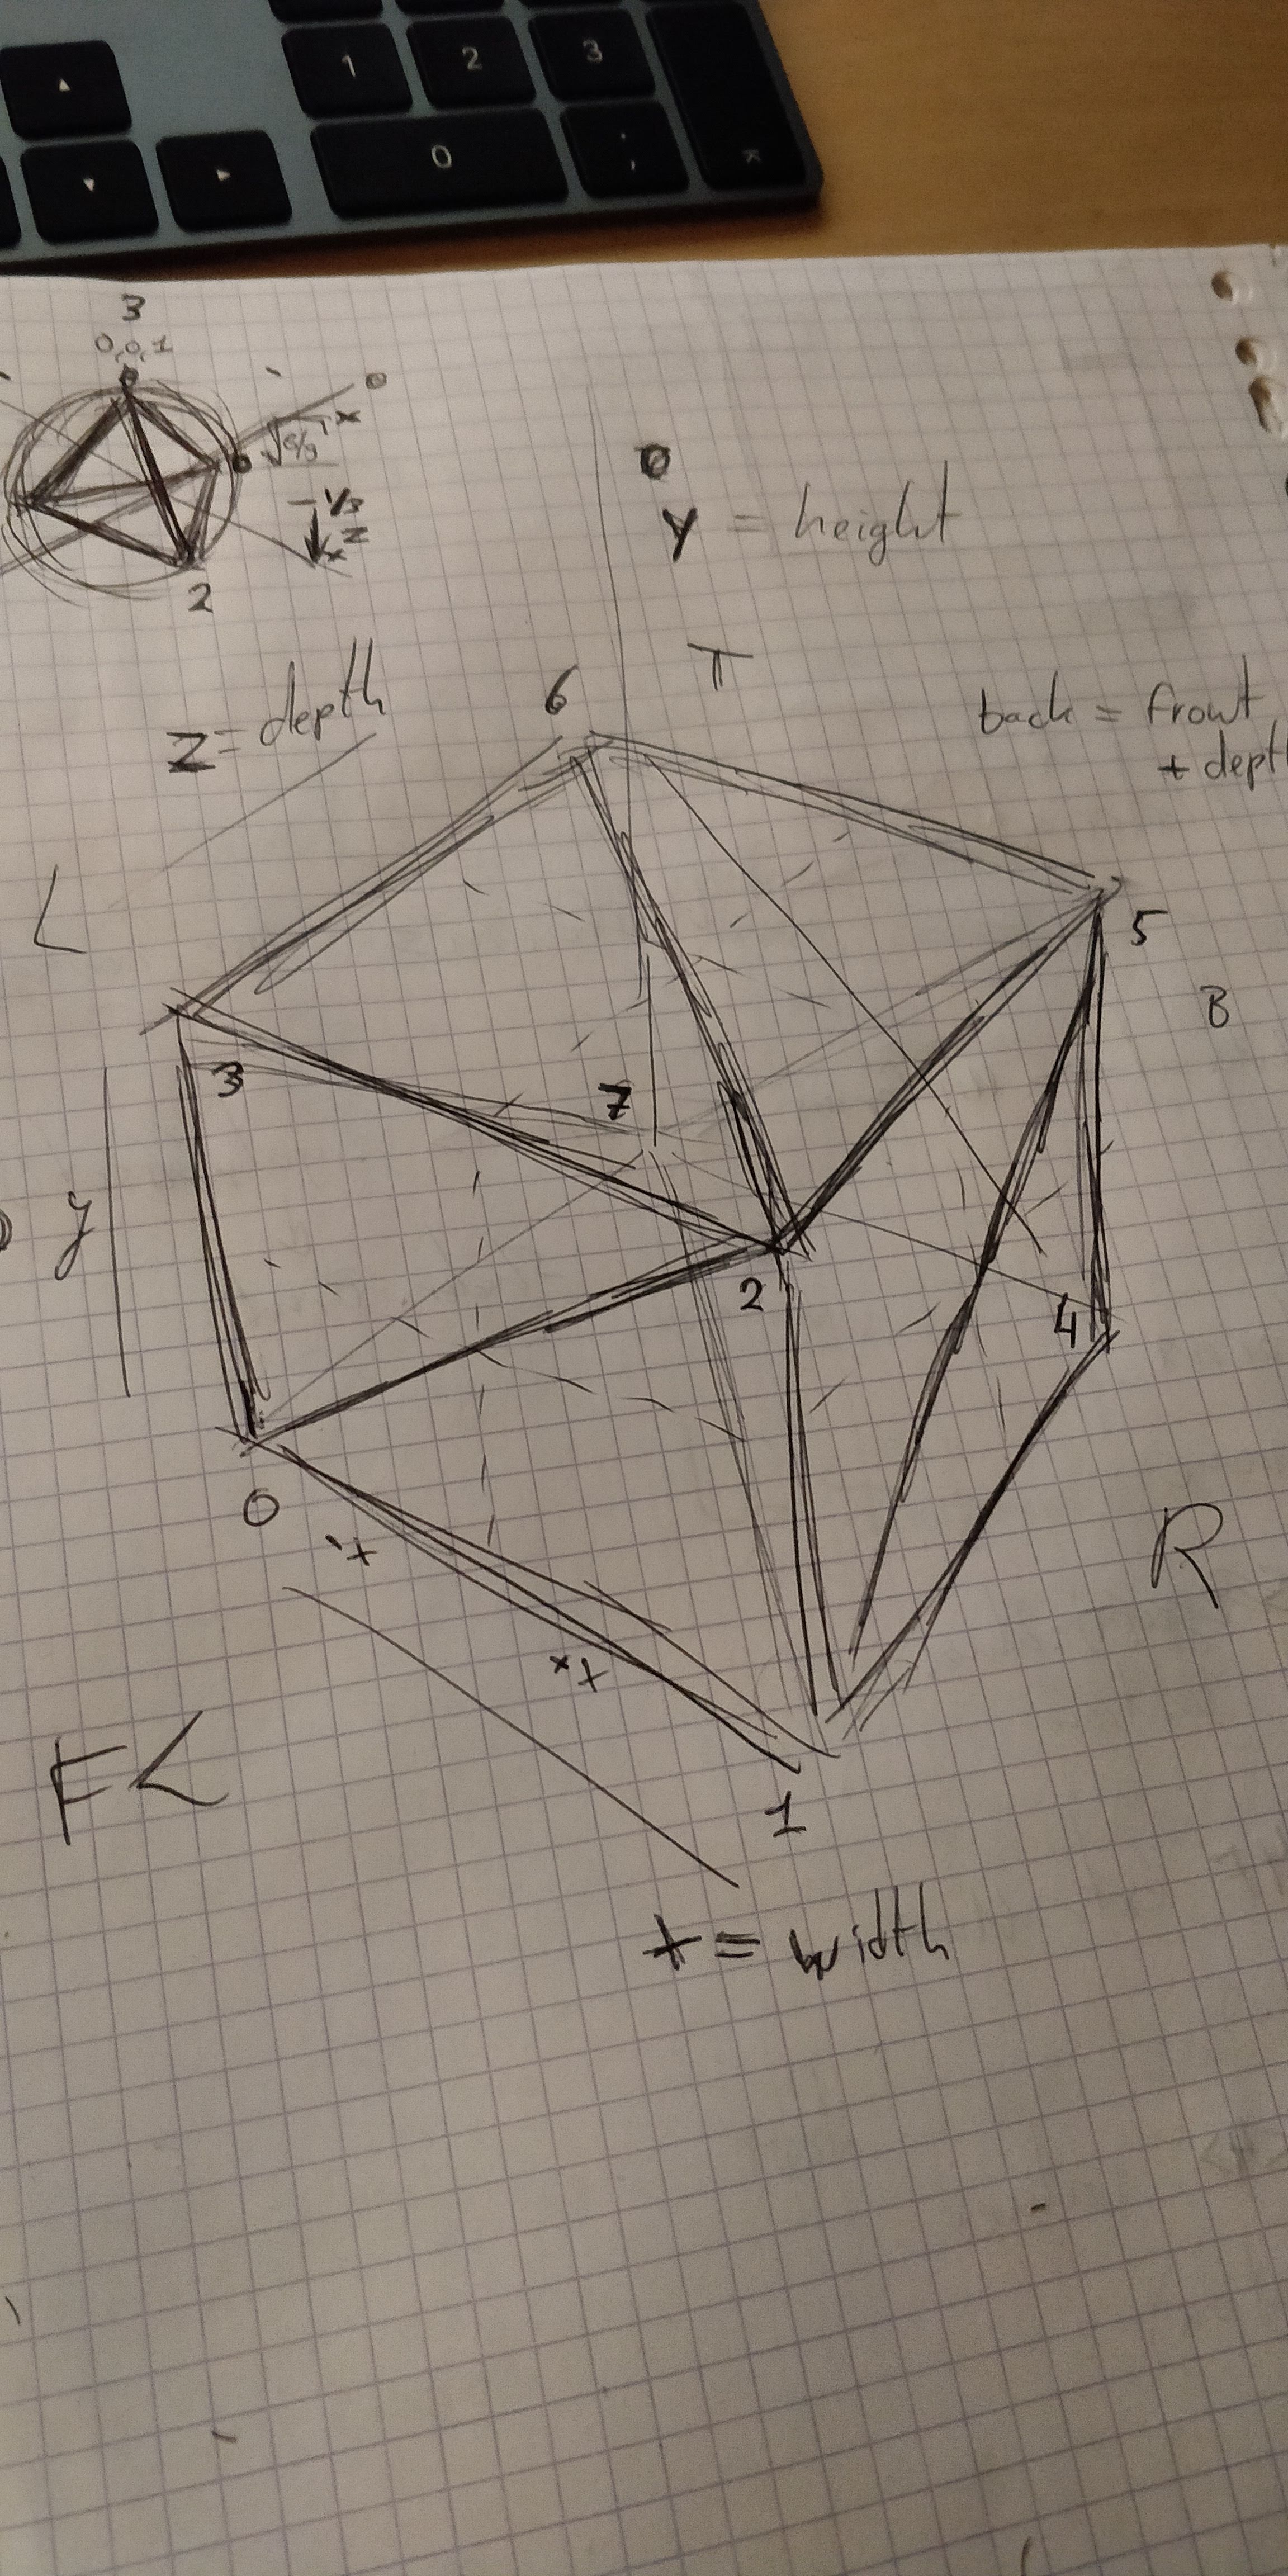 1 2 3
0 ;
3
0,0,1
0
x
-1/3
z
2
0
y = height
T
6
z = depth
back = front
+ depth
L
5
B
3
7
y
2
4
0
R
F L
1
x = width